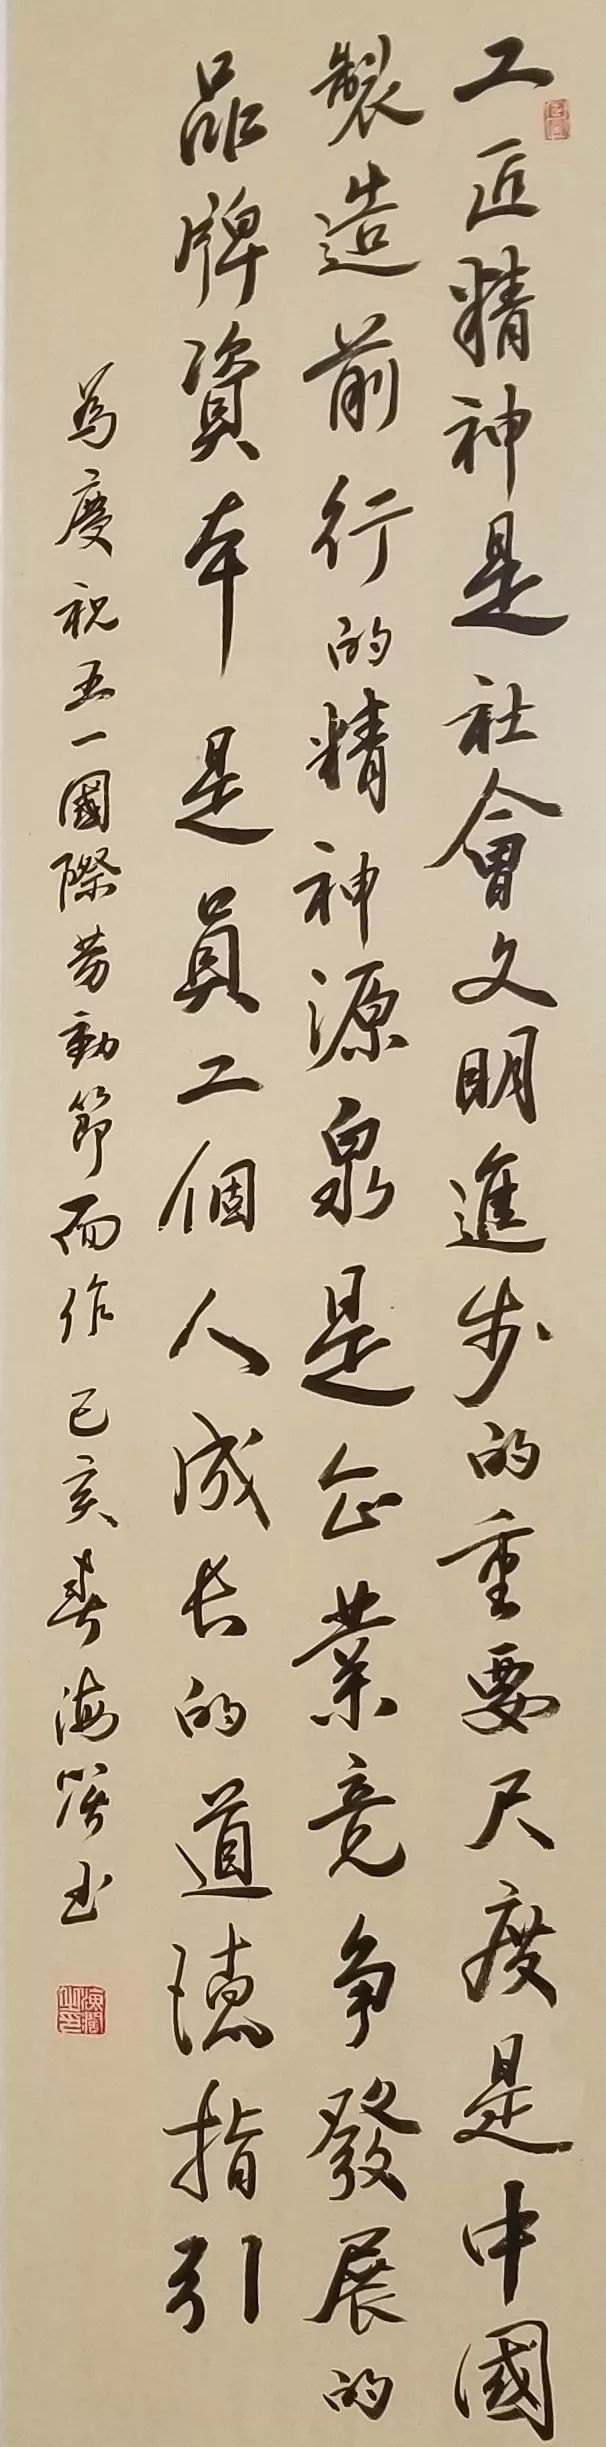 工匠精神是社會文明進步的重要尺度是中國
製造前行的精神源泉是企業競爭發展的
品牌資本是員工個人成長的道德指引
為慶祝五一國際勞動節而作 己亥春海濶書